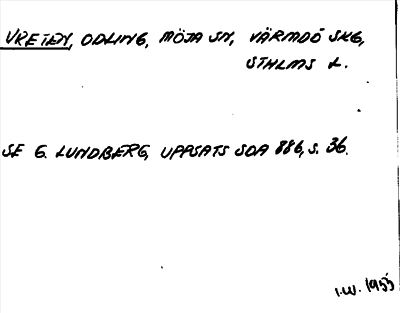 VRETEN, ODLING, MÖJA SN, VÄRMDÖ SKG,
STHLMS L.
SE G. LUNDBERG, UPPSATS SOA 886, S. 36.
I.W. 1955